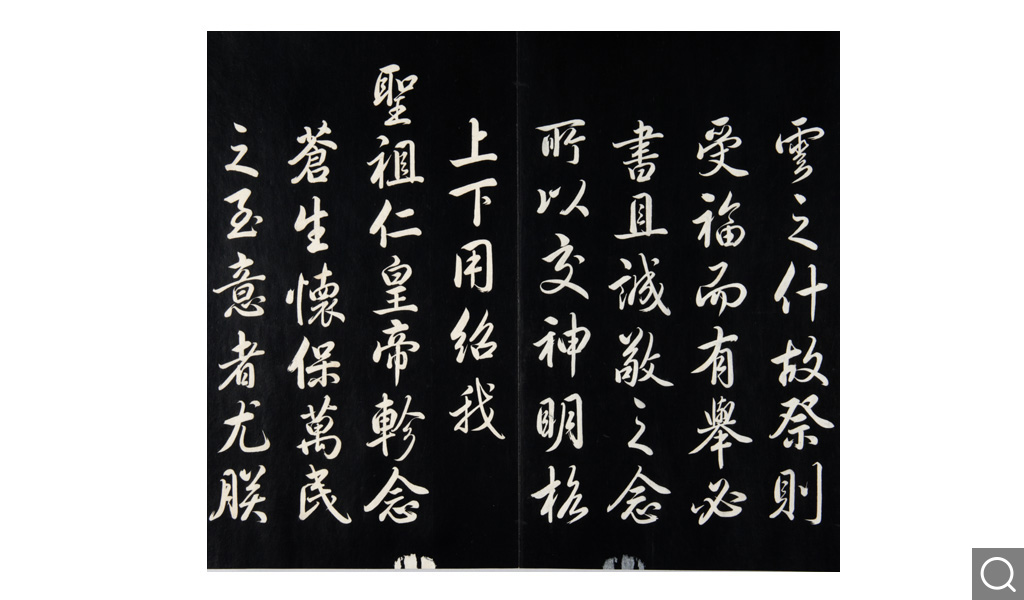 雲之什故祭則
受福而有舉必
書且誠敬之念
所以交神明格
上下用紹我
聖祖仁皇帝軫念
蒼生懷保萬民
之至意者尤朕